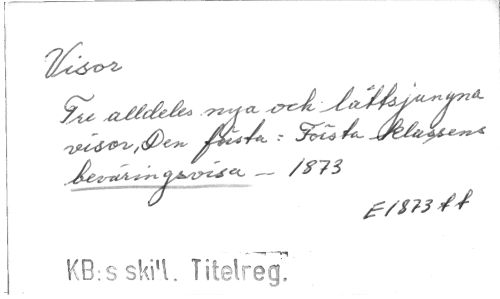 Visor
Tre alldeles nya och lättsjungna
visor, Den första: Första klassens
beväringsvisa - 1873
E1873 ff
KB:s skill. Titelreg.